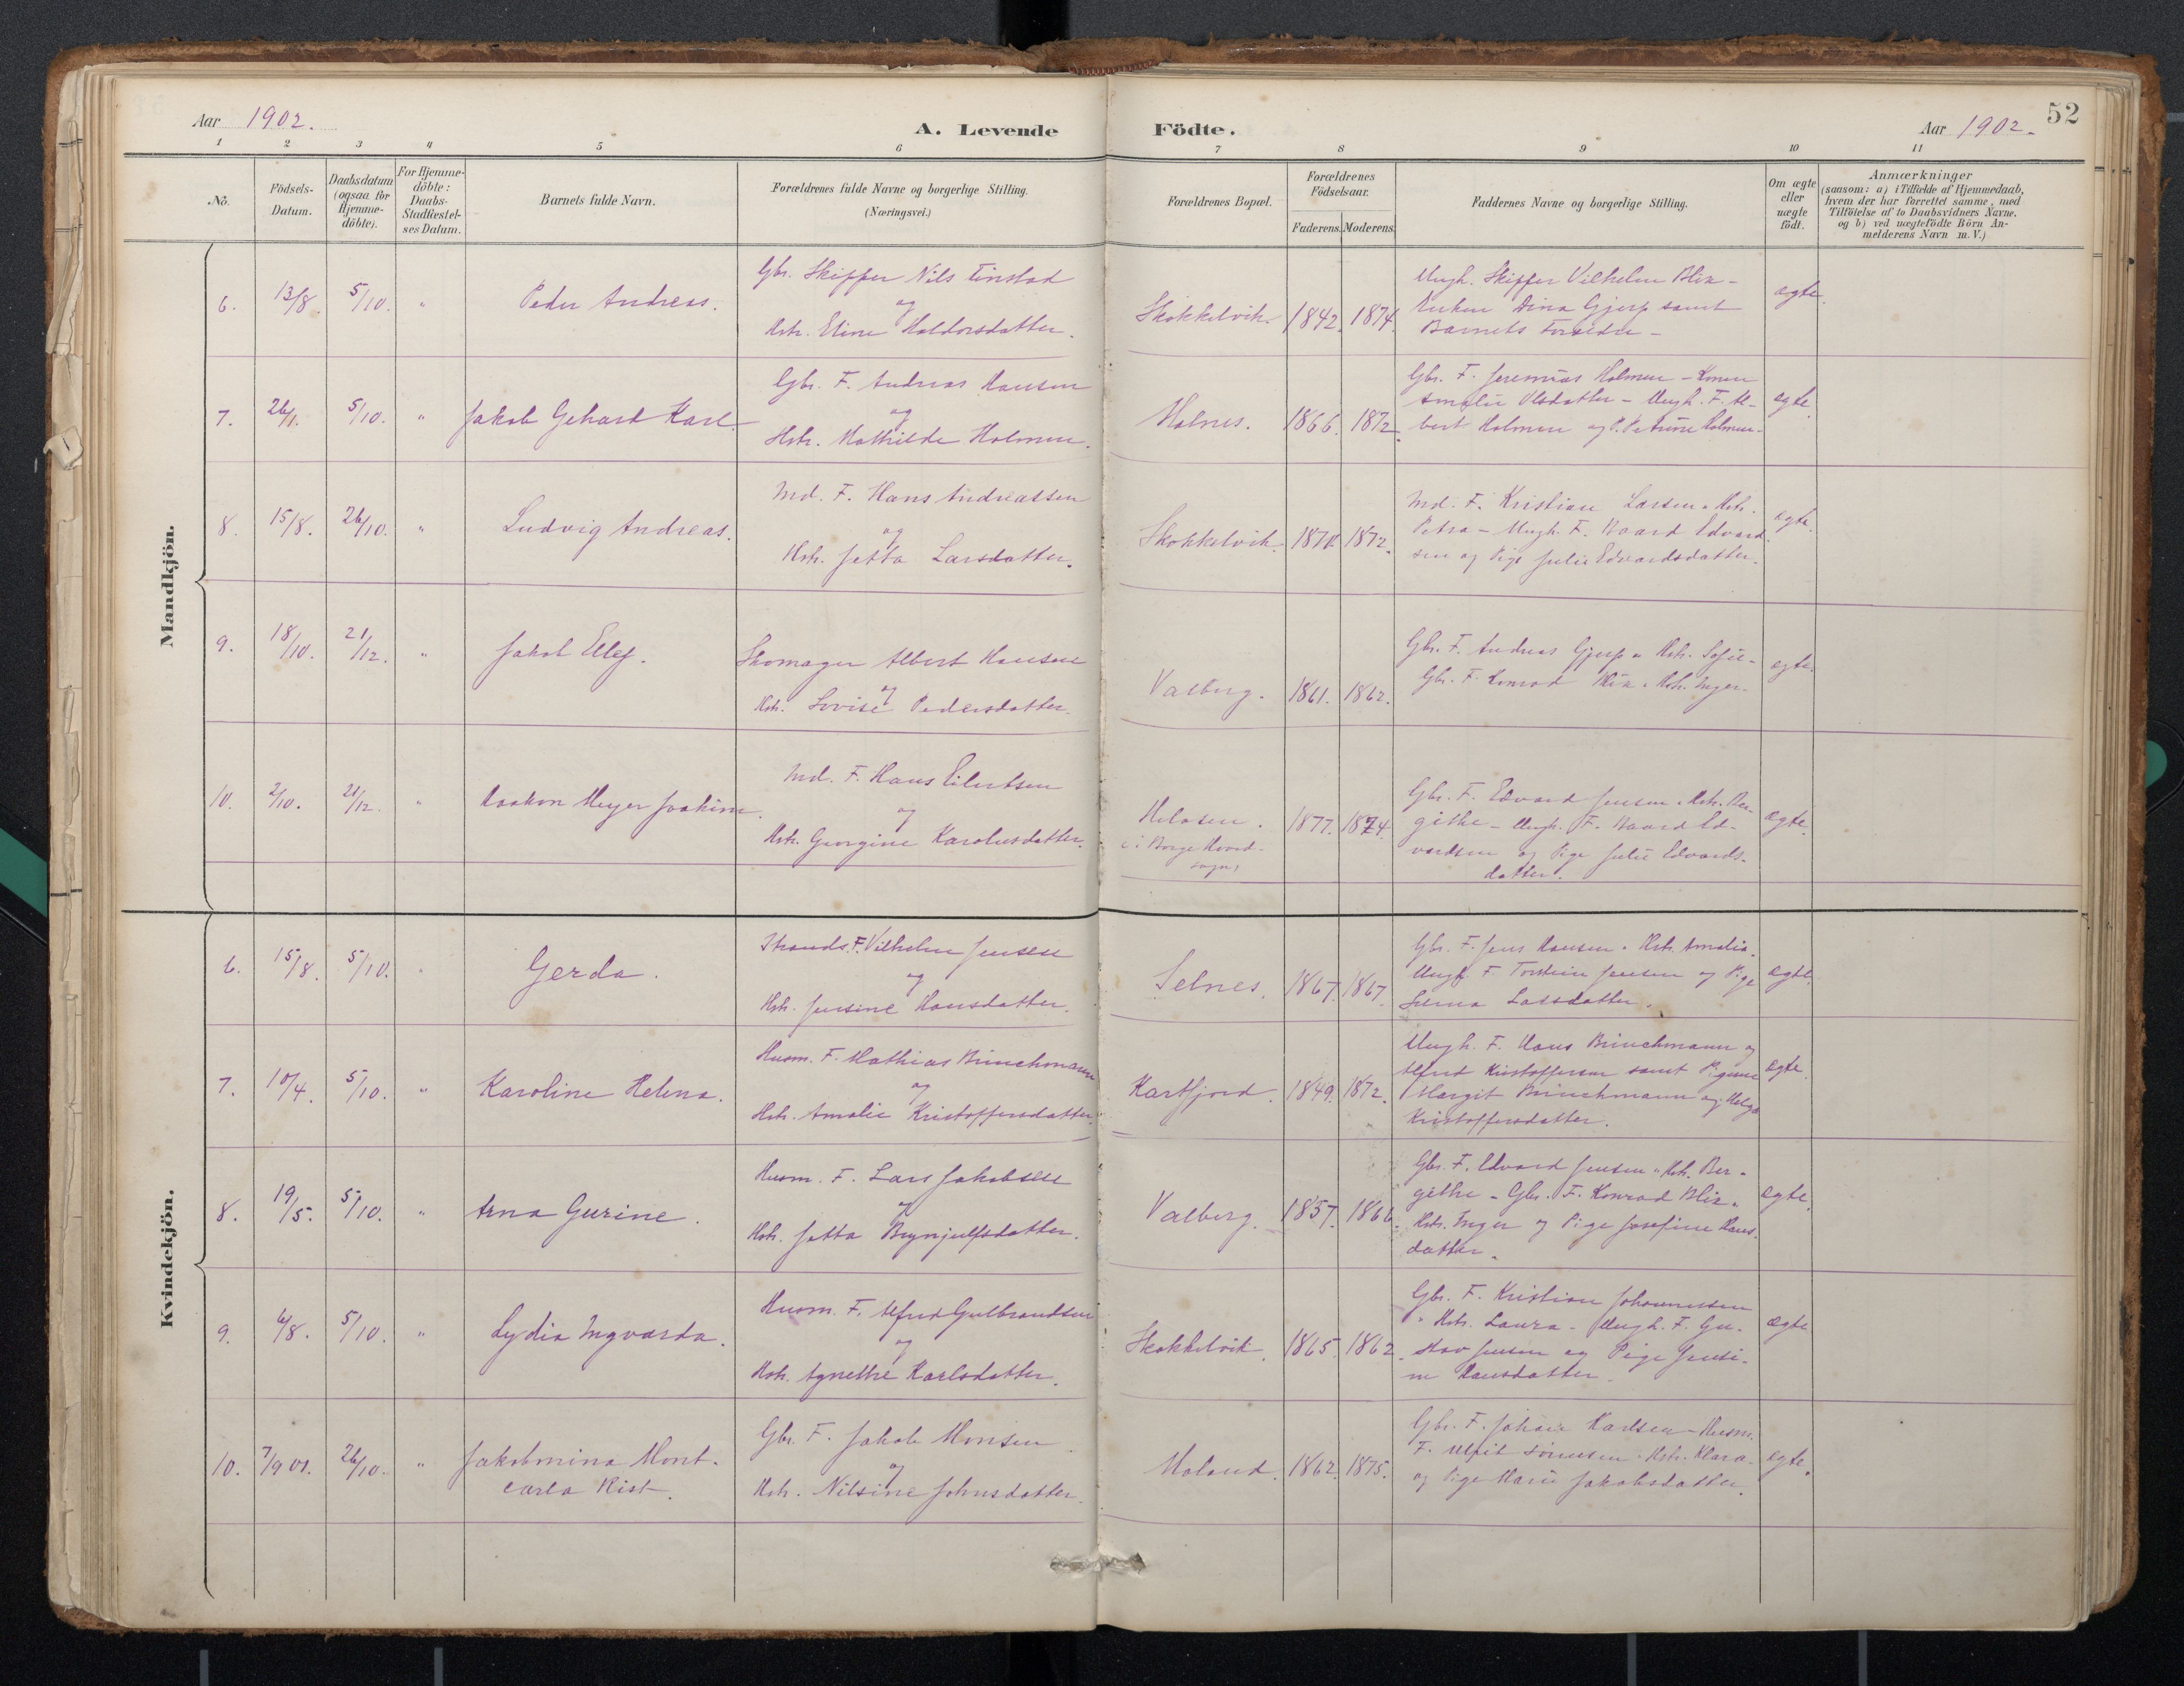 52
Aar 1902.
A. Levende Födte.
Aar 1902.
1 2 3 4 5 6 7 8 9 10 11
No.
Födsels-Datum.
Daabsdatum (ogsaa for Hjemme-döbte).
For Hjemme-döbte: Daabs-Stadfæstel-ses Datum.
Barnets fulde Navn.
Forældrenes fulde Navne og borgerlige Stilling.
(Næringsvei.)
Forældrenes Bopæl.
Forældrenes Födselsaar.
Faderens. Moderens.
Faddernes Navne og borgerlige Stilling.
Om ægte eller uægte födt.
Anmærkninger
(saasom: a) i Tilfælde af Hjemmedaab,
hvem der har forrettet samme, med
Tilföielse af to Daabsvidners Navne,
og b) ved uægtefödte Börn An-
melderens Navn m. V.)
Mandkjön.
6. 13/8. 5/10. " Peder Andreas.
Gbr. Skipper Nils Finstad
og
Hstr. Eline Haldorsdatter.
Skokkelvik. 1842. 1874.
Ungk. Skipper Vilhelm Blix -
Enken Dina Gjerp samt
Barnets Forældre -
ægte.
7. 26/1. 5/10. " Jakob Gehard Karl.
Gbr. F. Andreas Hansen
og
Hstr. Mathilde Holmen.
Molnes. 1866. 1872.
Gbr. F. Jeremias Holmen - Konen
Amalie Olsdatter - Ungk. F. Al-
bert Holmen og P. Petrine Holmen.
ægte.
8. 15/8. 26/10. " Ludvig Andreas.
Ind. F. Hans Andreassen
og
Hstr. Jetta Larsdatter.
Skokkelvik. 1872.
Ind. F. Kristian Larsen " Hstr.
Petra - Ungk. F. Baard Edvard-
sen og Pige Julie Edvardsdatter.
ægte.
9. 18/10. 21/12. " Jakob Ellef.
Skomager Albert Hansen
og
Hstr. Lovise Pedersdatter.
Valberg. 1861. 1862.
Gbr. F. Andreas Gjerp " Hstr. Sofie -
Gbr. F. Konrad Blix " Hstr. Inger.
ægte.
10. 2/10. 21/12. " Haakon Meyer Joakim.
Ind. F. Hans Eilertsen
og
Hstr. Georgine Karolusdatter.
Helosen.
i Borge Hoved-
sogn,
1877. 1874.
Gbr. F. Edvard Jensen " Hstr. Ber-
githe - Ungk. F. Baard Ed-
vardsen og Pige Julie Edvards-
datter.
ægte.
Kvindekjön.
6. 15/8. 5/10. " Gerda.
Strands. F. Vilhelm Jensen
og
Hstr. Jensine Hansdatter.
Selnes. 1867. 1867.
Gbr. F. Jens Hansen " Hstr. Amalia.
Ungk. F. Torstein Jensen og Pige
Larsdatter.
ægte.
7. 10/4. 5/10. " Karoline Helena.
Husm. F. Mathias Brinchmann
og
Hstr. Amalie Kristoffersdatter.
Kartfjord. 1849. 1872.
Ungk. F. Hans Brinchmann og
Alfred Kristoffersen samt Pigerne
Margit Brinchmann og Helga
Kristoffersdatter.
ægte.
8. 19/5. 5/10. " Arna Gurine.
Husm. F. Lars Jakobsen
og
Hstr. Jetta Brynjulfsdatter.
Valberg. 1857. 1866.
Gbr. F. Edvard Jensen " Hstr. Ber-
githe - Gbr. F. Konrad Blix "
Hstr. Inger og Pige Josefine Hans-
datter.
ægte.
9. 6/8. 5/10. " Lydia Ingvarda.
Husm. F. Alfred Gulbrandsen
og
Hstr. Agnethe Karlsdatter.
Skokkelvik. 1865. 1862.
Gbr. F. Kristian Johannessen
" Hstr. Laura - Ungk. F. Gu-
stav Jensen og Pige Jensi-
ne Hansdatter.
ægte
10. 7/9 01. 26/10. " Jakobmina Mont.
carla Rist.
Gbr. F. Jakob Monsen
og
Hstr. Nilsine Johnsdatter.
Moland. 1862. 1875.
Gbr. F. Johan Karlsen - Husm.
F. Sörensen " Hstr. Klara -
og Pige Marie Jakobsdatter.
ægte.